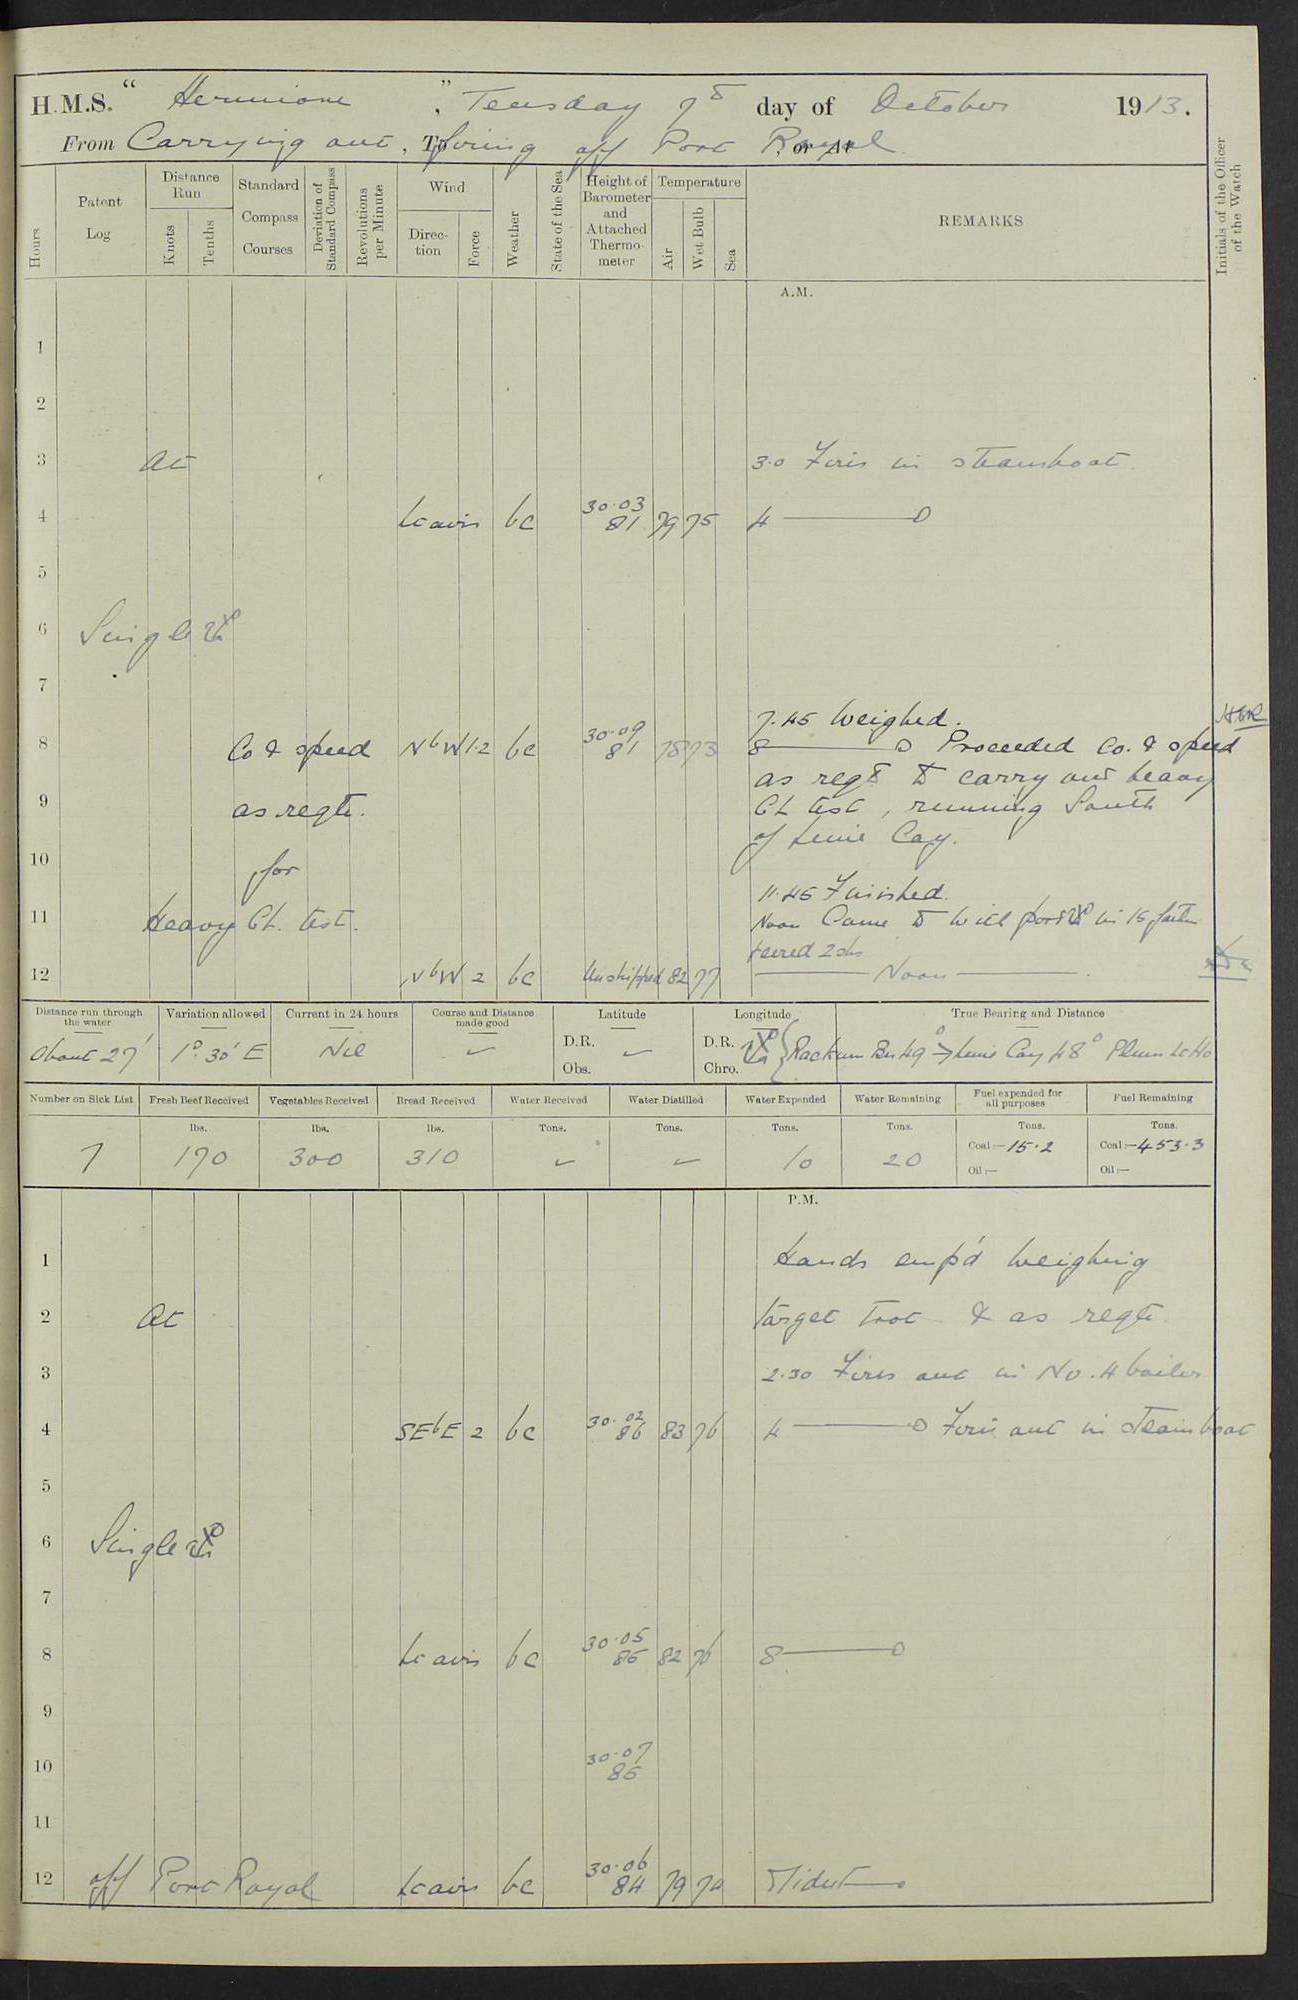 H.M.S. “ Hermione ”, Tuesday 7th day of October 1913.
From Carrying out, To firing off Port Royal, or At
Hours
Patent Log
Distance Run
Knots
Tenths
Standard Compass Courses
Deviation of Standard Compass
Revolutions per Minute
Wind
Direction
Force
Weather
State of the Sea
Height of Barometer and Attached Thermometer
Temperature
Air
Wet Bulb
Sea
REMARKS
Initials of the Officer of the Watch
A.M.
1
2
3 At 3.0 Fires in steamboat
4 Lt airs bc 30.03 81 79 75 4
5
6 Single
7
7.45 Weighed.
8 Co & speed NbW 1.2 bc 30.09 81 78 73 8 Proceeded Co. & speed
as reqd to carry out heavy
9 as reqte. GL test, running South
of Lime Cay.
10 for
11.45 Finished.
11 Heavy GL. test. Noon Came to with port in 15 fathm
veered 2 shs
12 NbW 2 bc Unshipped 82 77 Noon
Distance run through the water
Variation allowed
Current in 24 hours
Course and Distance made good
Latitude
Longitude
True Bearing and Distance
About 27' 1° 30' E Nil D.R. Obs. D.R. Chro. Rackum Bn 49° Lime Cay 48° Plum Lt Ho
Number on Sick List
Fresh Beef Received
Vegetables Received
Bread Received
Water Received
Water Distilled
Water Expended
Water Remaining
Fuel expended for all purposes
Fuel Remaining
lbs. lbs. lbs. Tons. Tons. Tons. Tons. Tons. Tons.
7 170 300 310 10 20 Coal:—15.2 Coal:—453.3
Oil:— Oil:—
P.M.
1 Hands emp'd weighing
2 At target Trot & as reqte.
3 2.30 Fires out in No. 4 boiler
4 SEbE 2 bc 30.02 86 83 76 4 Fires out in steamboat
5
6 Single
7
8 Lt airs bc 30.05 85 82 76 8
9
10 30.07 85
11
12 off Port Royal Lt airs bc 30.06 84 79 74 Midnt